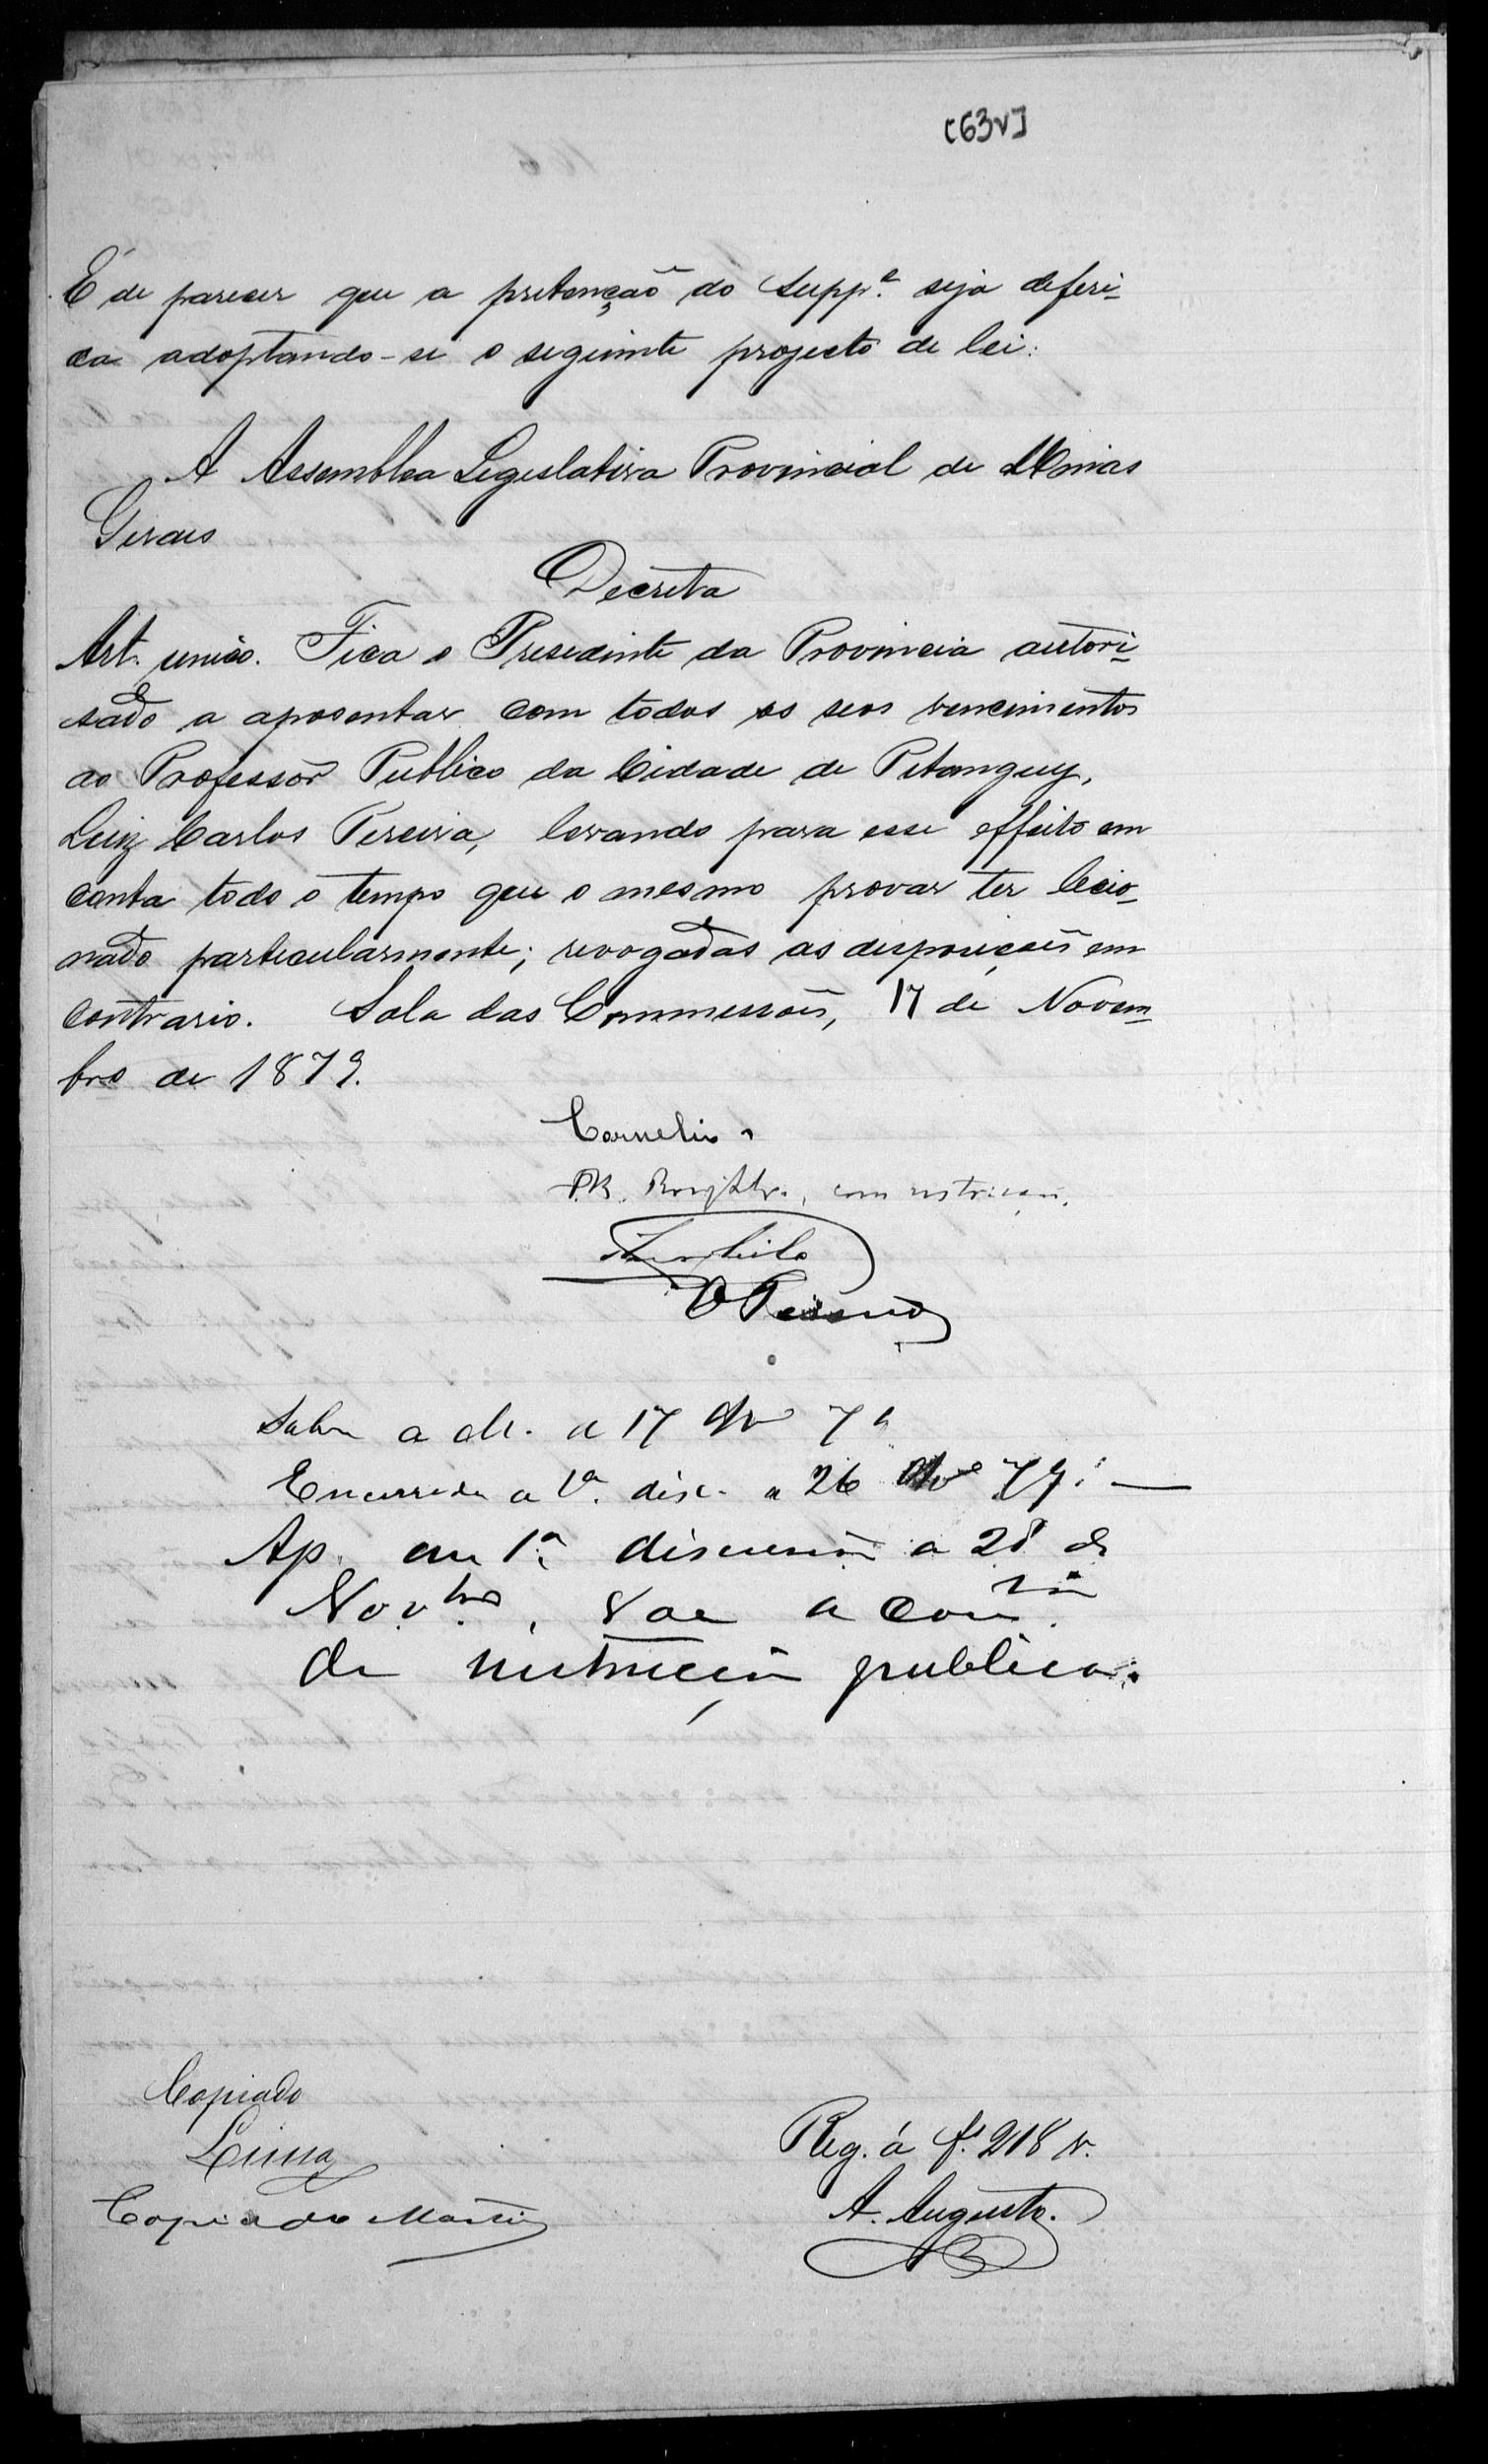 [63v]
É de parecer que a pretenção do Supp.e seja deferi-
da adoptando-se o seguinte projecto de lei:
A Assemblea Legislativa Provincial de Minas
Geraes
Decreta
Art. unico. Fica o Presidente da Provincia autori-
sado a aposentar com todos os seos vencimentos
ao Professor Publico da Cidade de Pitanguy,
Luiz Carlos Pereira, levando para esse effeito em
conta todo o tempo que o mesmo provar ter lecio-
nado particularmente; revogadas as disposições em
contrario. Sala das Commessões, 17 de Novem-
bro de 1879.
Cornelio
com restricção.
a 17
Encerrada a 1ª. disc. a 26 79.
Ap. em 1ª discussão a 28 de
Nov.bro, vae a Com.
de instrucção publica.
Copiado
Lima
Copiado Martins
Reg. á f. 218 v.
A. Augusto.